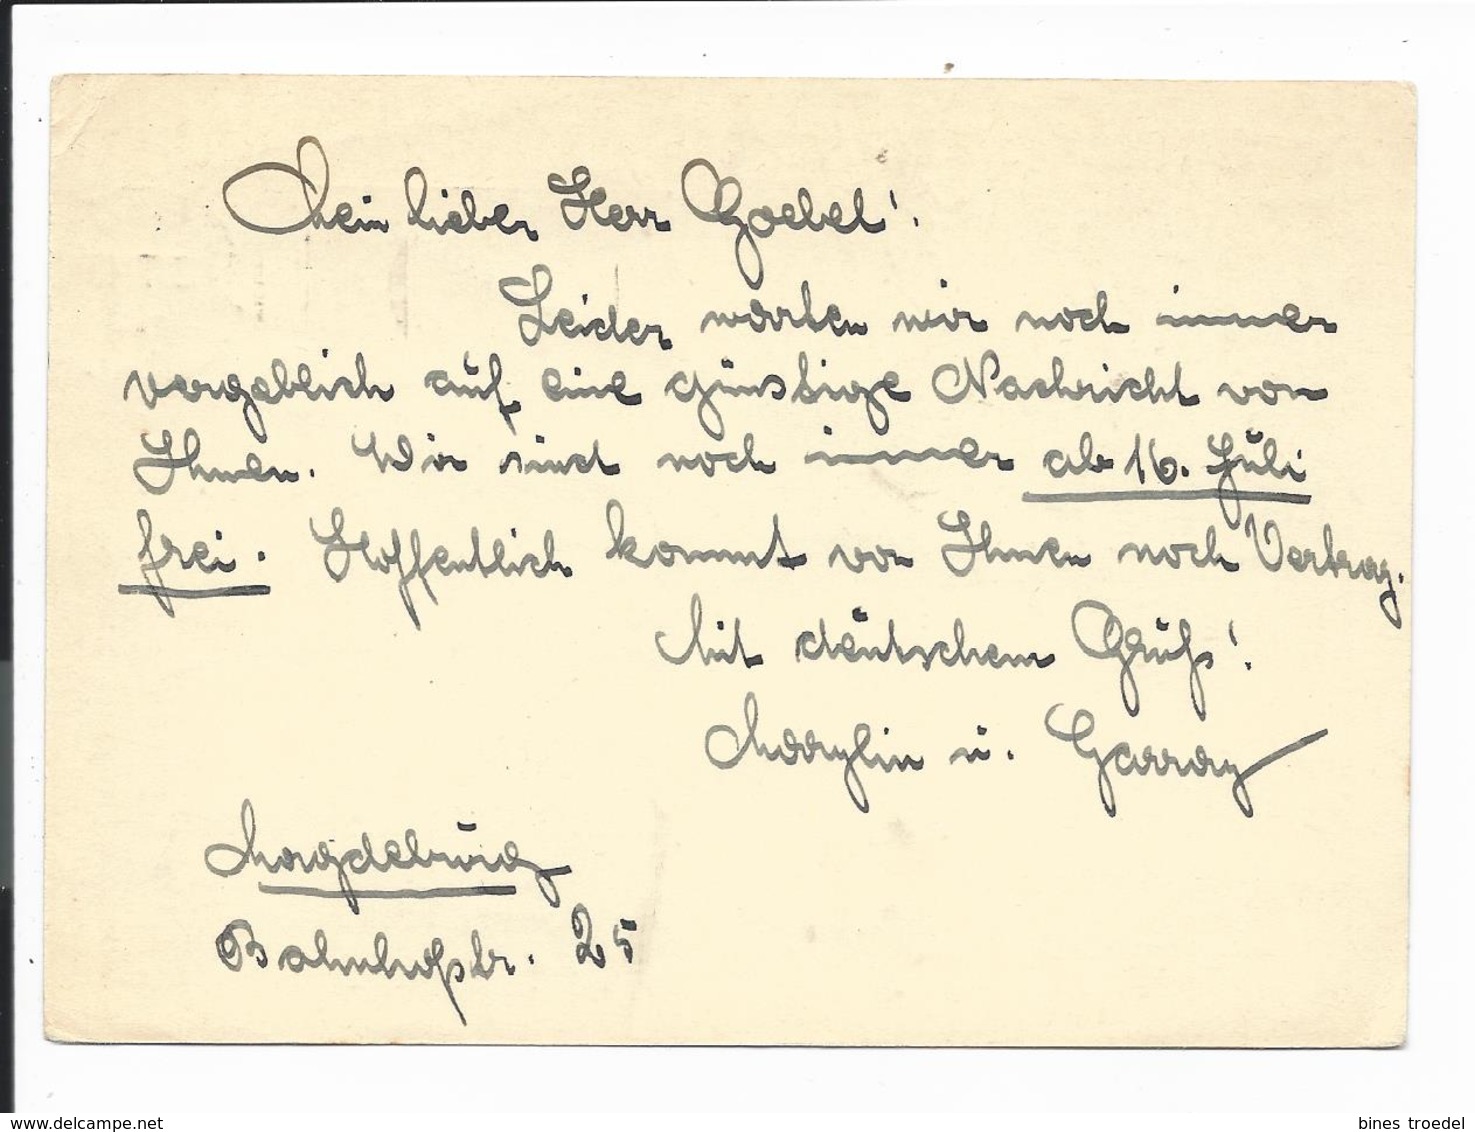 Mein lieber Herr Goebel!
Leider warten wir noch immer
vergeblich auf eine günstige Nachricht von
Ihnen. Wir sind noch immer ab 16. Juli
frei. Hoffentlich kommt von Ihnen noch Vertrag.
Mit deutschem Gruß!
Marylin u. Garray
Magdeburg
Bahnhofstr. 25
bines troedel